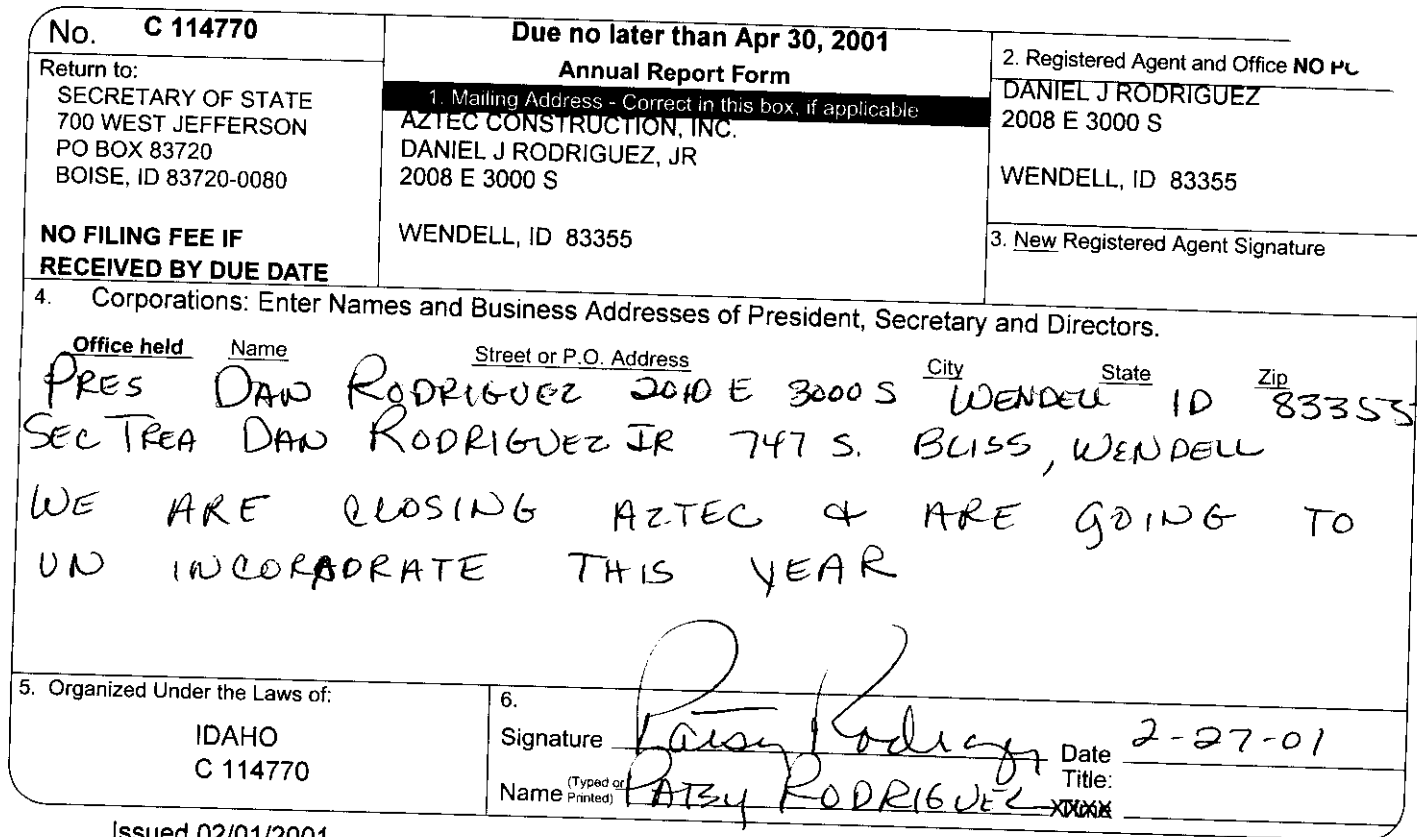 No. C 114770
Return to:
SECRETARY OF STATE
700 WEST JEFFERSON
PO BOX 83720
BOISE, ID 83720-0080
NO FILING FEE IF
RECEIVED BY DUE DATE
Due no later than Apr 30, 2001
Annual Report Form
1. Mailing Address - Correct in this box, if applicable
AZTEC CONSTRUCTION, INC.
DANIEL J RODRIGUEZ, JR
2008 E 3000 S
WENDELL, ID 83355
2. Registered Agent and Office NO
DANIEL J RODRIGUEZ
2008 E 3000 S
WENDELL, ID 83355
3. New Registered Agent Signature
4. Corporations: Enter Names and Business Addresses of President, Secretary and Directors.
Office held Name Street or P.O. Address City State Zip
PRES DAN RODRIGUEZ 2010 E 3000 S WENDELL ID 83355
SEC TREA DAN RODRIGUEZ JR 747 S. BLISS, WENDELL
WE ARE CLOSING AZTEC & ARE GOING TO
UN INCORAORATE THIS YEAR
5. Organized Under the Laws of:
IDAHO
C 114770
6.
Signature Patsy Rodriguez Date 2-27-01
Name (Typed or Printed) PATSY RODRIGUEZ Title:
Issued 02/01/2001